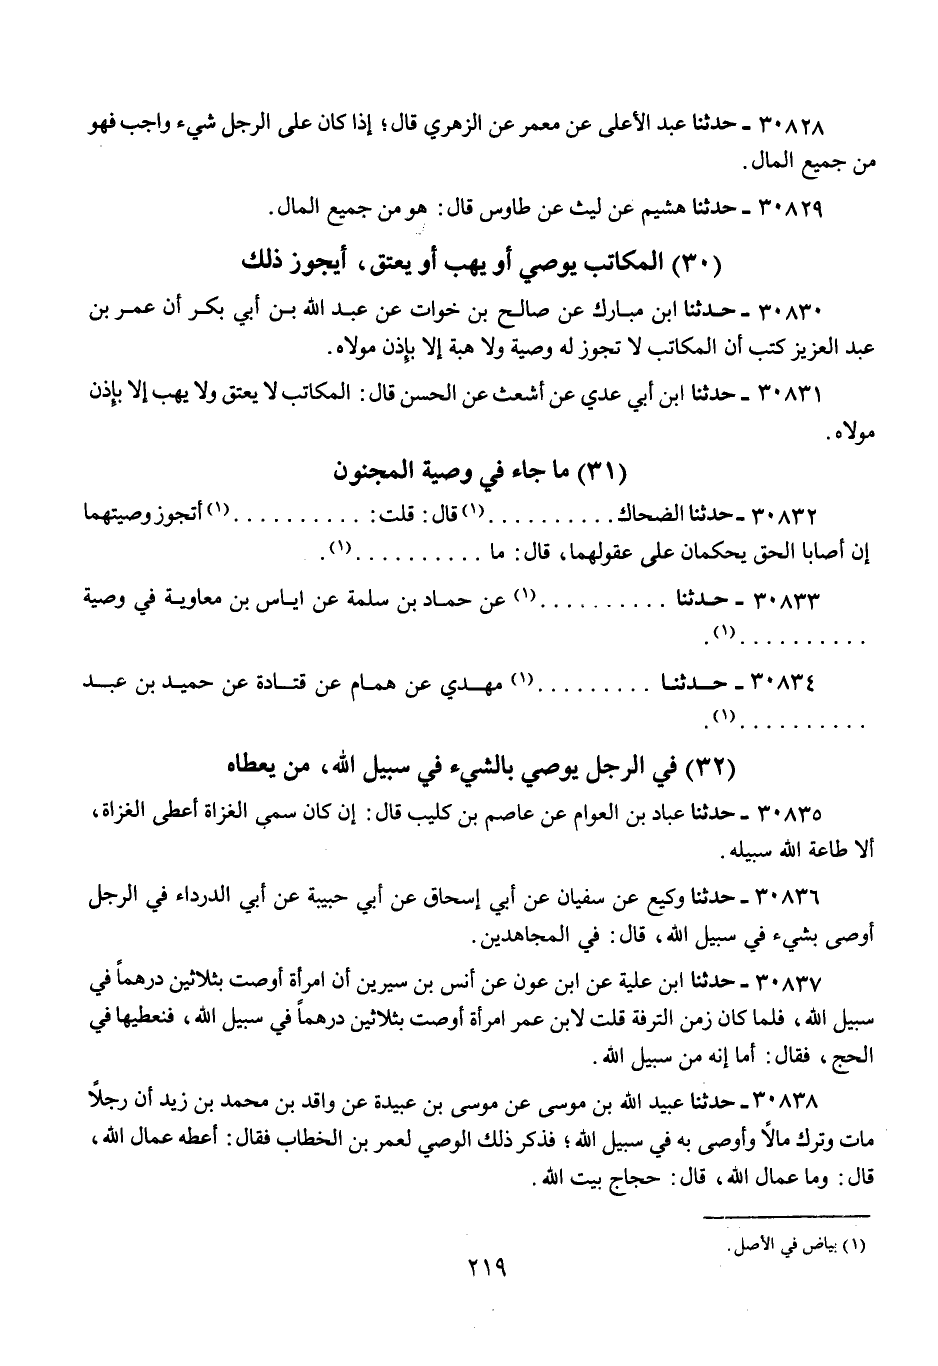 ٣٠٨٢٨ ـ حدثنا عبد الأعلى عن معمر عن الزهري قال؛ إذا كان على الرجل شيء واجب فهو
من جميع المال.
٣٠٨٢٩ ـ حدثنا هشيم عن ليث عن طاوس قال: هو من جميع المال.
(٣٠) المكاتب يوصي أو يهب أو يعتق، أيجوز ذلك
٣٠٨٣٠ ـ حدثنا ابن مبارك عن صالح بن خوات عن عبد الله بن أبي بكر أن عمر بن
عبد العزيز كتب أن المكاتب لا تجوز له وصية ولا هبة إلا بإذن مولاه.
٣٠٨٣١ ـ حدثنا ابن أبي عدي عن أشعث عن الحسن قال: المكاتب لا يعتق ولا يهب إلا بإذن
مولاه.
(٣١) ما جاء في وصية المجنون
٣٠٨٣٢ ـ حدثنا الضحاك..........(١) قال: قلت: ..........(١) أتجوز وصيتهما
إن أصابا الحق يحكمان على عقولهما، قال: ما ..........(١).
٣٠٨٣٣ ـ حدثنا ..........(١) عن حماد بن سلمة عن اياس بن معاوية في وصية
..........(١).
٣٠٨٣٤ ـ حدثنا .........(١) مهدي عن همام عن قتادة عن حميد بن عبد
..........(١).
(٣٢) في الرجل يوصي بالشيء في سبيل الله، من يعطاه
٣٠٨٣٥ ـ حدثنا عباد بن العوام عن عاصم بن كليب قال: إن كان سمي الغزاة أعطى الغزاة،
ألا طاعة الله سبيله.
٣٠٨٣٦ ـ حدثنا وكيع عن سفيان عن أبي إسحاق عن أبي حبيبة عن أبي الدرداء في الرجل
أوصى بشيء في سبيل الله، قال: في المجاهدين.
٣٠٨٣٧ ـ حدثنا ابن علية عن ابن عون عن أنس بن سيرين أن امرأة أوصت بثلاثين درهماً في
سبيل الله، فلما كان زمن الترفة قلت لابن عمر امرأة أوصت بثلاثين درهماً في سبيل الله، فنعطيها في
الحج، فقال: أما إنه من سبيل الله.
٣٠٨٣٨ ـ حدثنا عبيد الله بن موسى عن موسى بن عبيدة عن واقد بن محمد بن زيد أن رجلاً
مات وترك مالاً وأوصى به في سبيل الله؛ فذكر ذلك الوصي لعمر بن الخطاب فقال: أعطه عمال الله،
قال: وما عمال الله، قال: حجاج بيت الله.
(١) بياض في الأصل.
٢١٩